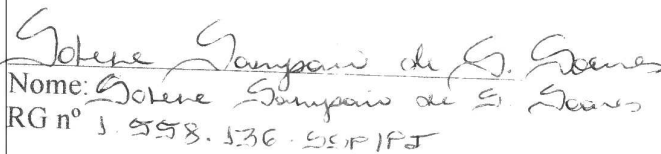 Solene Sampaio de S. Soares
Nome: Solene Sampaio de S. Soares
RG nº 1.558.136.SSP/PI